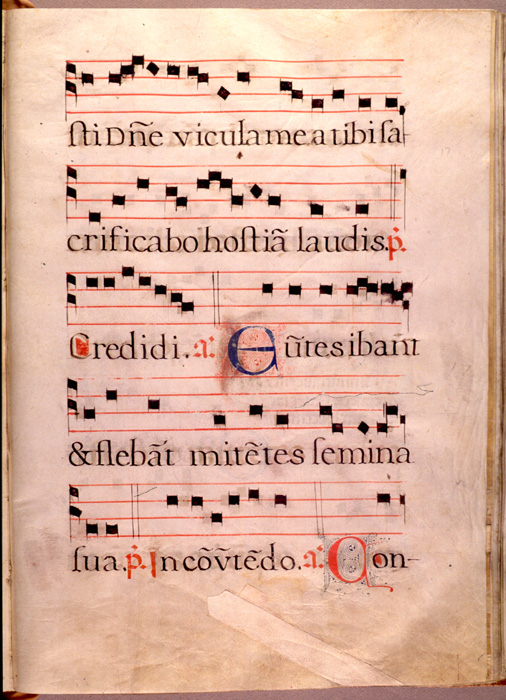 sti Dñe vicula mea tibi sa-
crificabo hostiã laudis. p̃.
Credidi. a. Eũtes ibant
& flebãt mitẽtes semina
sua. p̃. In cõṽtẽdo. a. Con-